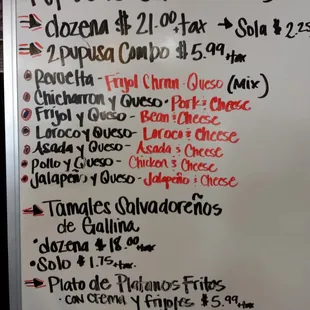 dozena $ 21.00 +tax → Sola $ 2.25
2 pupusa Combo $ 5.99 +tax
Revuelta - Frijol Chrrn - Queso (Mix)
Chicharron y Queso - Pork & Cheese
Frijol y Queso - Bean & Cheese
Loroco y Queso - Loroco & Cheese
Asada y Queso - Asada & Cheese
Pollo y Queso - Chicken & Cheese
Jalapeño y Queso - Jalapeño & Cheese
Tamales Salvadoreños
de Gallina
• dozena $ 18.00 +tax
• Solo $ 1.75 +tax
Plato de Platanos Fritos
- con crema y frijoles $ 5.99 +tax